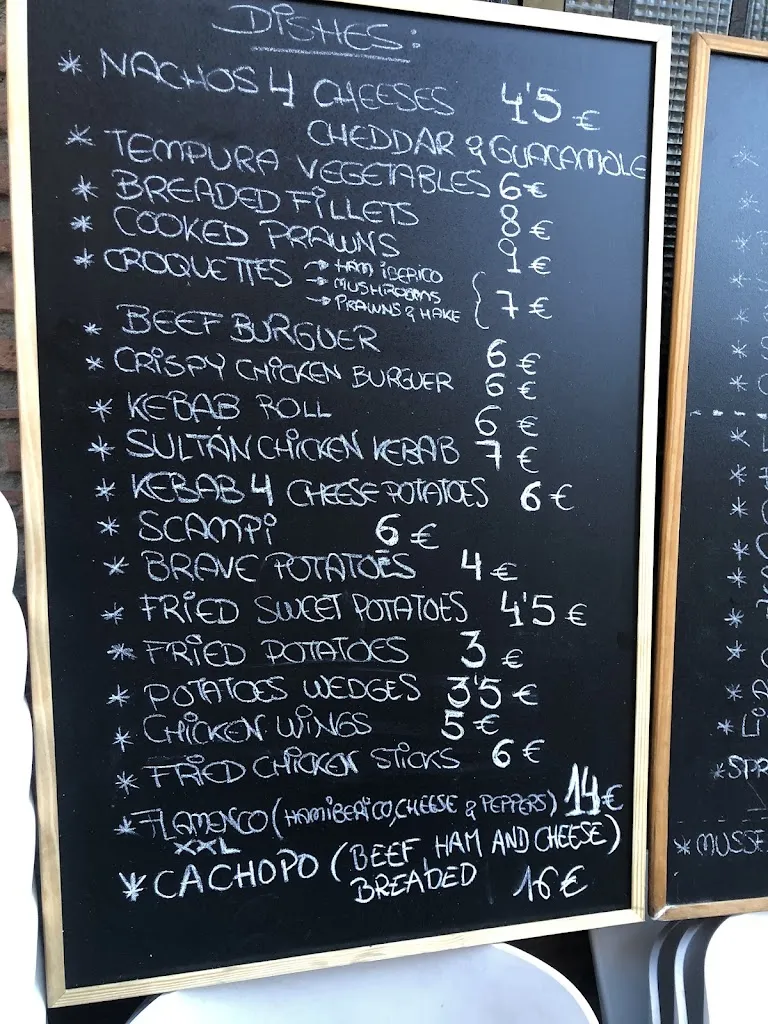 DISHES:
* NACHOS 4 CHEESES 4'5 €
CHEDDAR & GUACAMOLE
* TEMPURA VEGETABLES 6 €
* BREADED FILLETS 8 €
* COOKED PRAWNS 9 €
* CROQUETTES → HAM IBERICO
→ MUSHROOMS
→ PRAWNS & HAKE { 7 €
* BEEF BURGUER 6 €
* CRISPY CHICKEN BURGUER 6 €
* KEBAB ROLL 6 €
* SULTÁN CHICKEN KEBAB 7 €
* KEBAB 4 CHEESE POTATOES 6 €
* SCAMPI 6 €
* BRAVE POTATOES 4 €
* FRIED SWEET POTATOES 4'5 €
* FRIED POTATOES 3 €
* POTATOES WEDGES 3'5 €
* CHICKEN WINGS 5 €
* FRIED CHICKEN STICKS 6 €
* FLAMENCO (HAM IBERICO, CHEESE & PEPPERS) 14 €
XXL
* CACHOPO (BEEF, HAM AND CHEESE)
BREADED 16 €
* LI
* SPR
* MUSSE